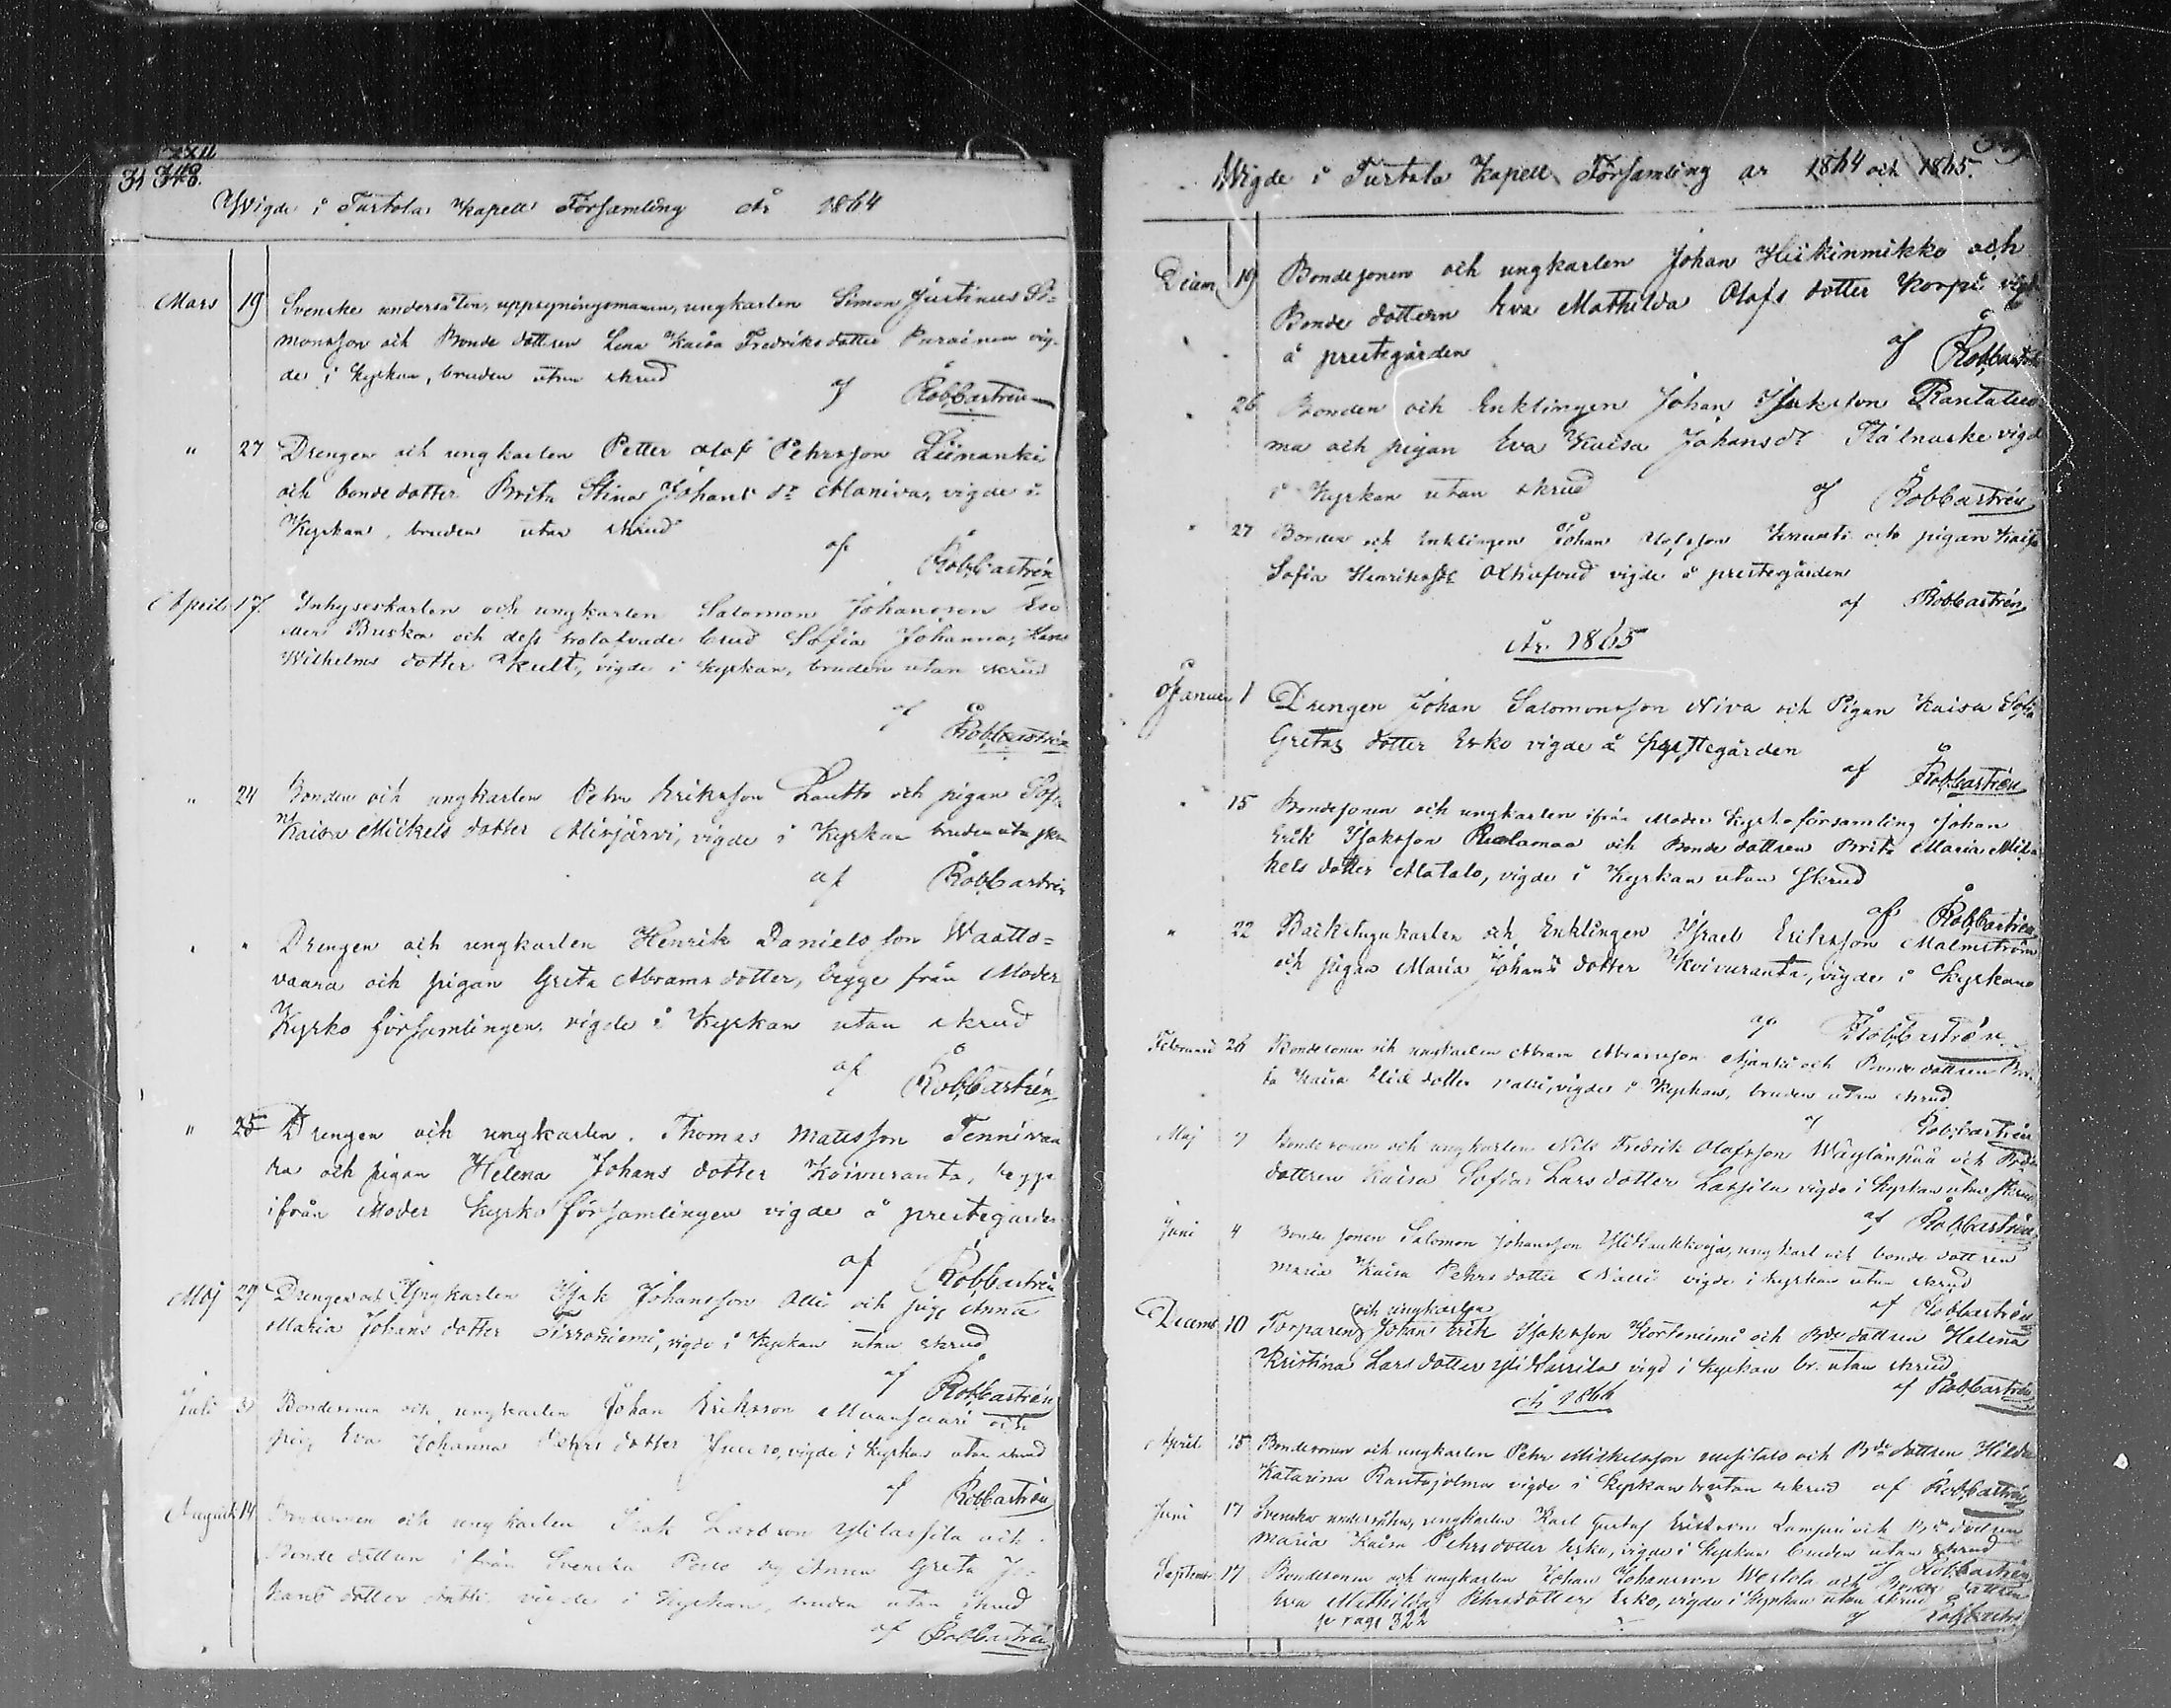 348.
Wigde i Turtola Kapell Församling År 1864
Mars 19 Svenske undersåten, uppsyningsmannen, ungkarlen Simon Justinus Si=
monsson och Bonde dottren Lena Kaisa Fredriksdotter Purainen vig-
de i Kyrkan, bruden utan skrud
af Rob Castrén
" 27 Drengen och ungkarlen Petter Olof Pehrsson Liinanki
och bonde dotter Brita Stina Johans dr Alaniva, vigde i
Kyrkan, bruden utan skrud
af Rob Castrén
April 17 Inhyseskarlen och ungkarlen Salomon Johansson
Buska och dess trolofvade brud Sofia Johanna, Hans
Wilhelms dotter Kult, vigde i kyrkan, bruden utan skrud
af Rob Castrén
" 24 Bonden och ungkarlen Pehr Eriksson Lautto och pigan
Kaisa Mickels dotter Alisjärvi, vigde i Kyrkan bruden utan
af Rob Castrén
" " Drengen och ungkarlen Henrik Daniels son Waatto=
vaara och pigan Greta Abrams dotter, begge från Moder
Kyrko församlingen, vigde i Kyrkan utan skrud
af Rob Castrén
" 25 Drengen och ungkarlen Thomas Matsson Tennivaa
ra och pigan Helena Johans dotter Koivuranta, begge
ifrån Moder Kyrko församlingen vigde å prestegården
af Rob Castrén
Maj 29 Drengen och Ungkarlen Isak Johansson Olli och pig. Anna
Maria Johans dotter Sirroniemi, vigde i Kyrkan utan skrud
af Rob Castrén
Juli 3 Bondesonen och ungkarlen Johan Eriksson och
pig. Eva Johanna Pehrs dotter Juuso, vigde i Kyrkan utan skrud
af Rob Castrén
Augusti 14 Bondesonen och ungkarlen Isak Larsson Ylilassila och
Bonde dottren ifrån Svenska Anna Greta Jo=
hans dotter vigde i Kyrkan, bruden utan skrud
af Rob Castrén
Wigde i Turtola Kapell Församling år 1864 och 1865.
Decem 19 Bondesonen och ungkarlen Johan Heikinmikko och
Bonde dottern Eva Mathilda Olofs dotter Korpi vigd
å prestegården af Rob Castrén
" 26 Bonden och Enklingen Johan Isaksson Rantatuo
ma och pigan Eva Kaisa Johansdr vigd
i Kyrkan utan skrud af Rob Castrén
" 27 Bonden och Enklingen Johan Olofsson Kruunti och pigan Kaisa
Sofia Henriksdr vigde å prestegården
af Rob Castrén
År. 1865
Januari 1 Drengen Johan Salomonsson Niva och Pigan Kaisa Sofia
Gretas dotter Erko vigde å prestegården
af Rob Castrén
" 15 Bondesonen och ungkarlen ifrån Moder Kyrkoförsamling Johan
Erik Isaksson Ruolamaa och Bonde dottren Brita Maria Mik
kels dotter Alatalo, vigde i Kyrkan utan skrud
af Rob Castrén
" 22 Backstugukarlen och Enklingen Israel Eriksson Malmström
och pigan Maria Johans dotter Koivuranta, vigde i Kyrkan
af Rob Castrén
Februari 26 Bondesonen och ungkarlen Abram Abramsson och Bonde dottren Bri
ta Kaisa dotter vigde i Kyrkan, bruden utan skrud
af Rob Castrén
Maj 7 Bondesonen och ungkarlen Nils Fredrik Olofsson Wäylänpää och Bonde
dottren Kaisa Sofia Lars dotter Lassila vigde i Kyrkan utan skrud
af Rob Castrén
Juni 4 Bonde sonen Salomon Johansson ungkarl och bonde dottren
Maria Kaisa Pehrs dotter Nalli vigde i kyrkan utan skrud
af Rob Castrén
Decemb 10 Torparen och ungkarlen Johan Erik Isaksson Korteniemi och Bde dottren Helena
Kristina Lars dotter vigd i kyrkan br. utan skrud
af Rob Castrén
År 1866
April 15 Bondesonen och ungkarlen Pehr Mickelsson Uusitalo och Bde dottren Hilda
Katarina Rantajolma vigde i Kyrkan br utan skrud af Rob Castrén
Juni 17 Svenska undersåten, ungkarlen Karl Gustaf Eriksson och Bde dottren
Maria Kaisa Pehrsdotter Erko, vigde i kyrkan bruden utan skrud
af Rob Castrén
Septemb 17 Bondesonen och ungkarlen Johan Johansson och Bonde dottren
Eva Mathilda Pehrsdotter Erko, vigde i Kyrkan utan skrud
af Rob Castrén
se page 322